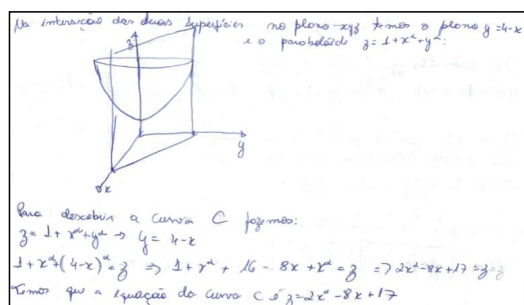 Na interseção das duas superfícies no plano-xyz temos o plano y=4-x
e o parabolóide z=1+x²+y²:
z
y
x
Para descobrir a curva C fazemos:
z=1+x²+y² → y=4-x
1+x²+(4-x)²=z => 1+x²+16-8x+x²=z => 2x²-8x+17=z
Temos que a equação da curva C é z=2x²-8x+17